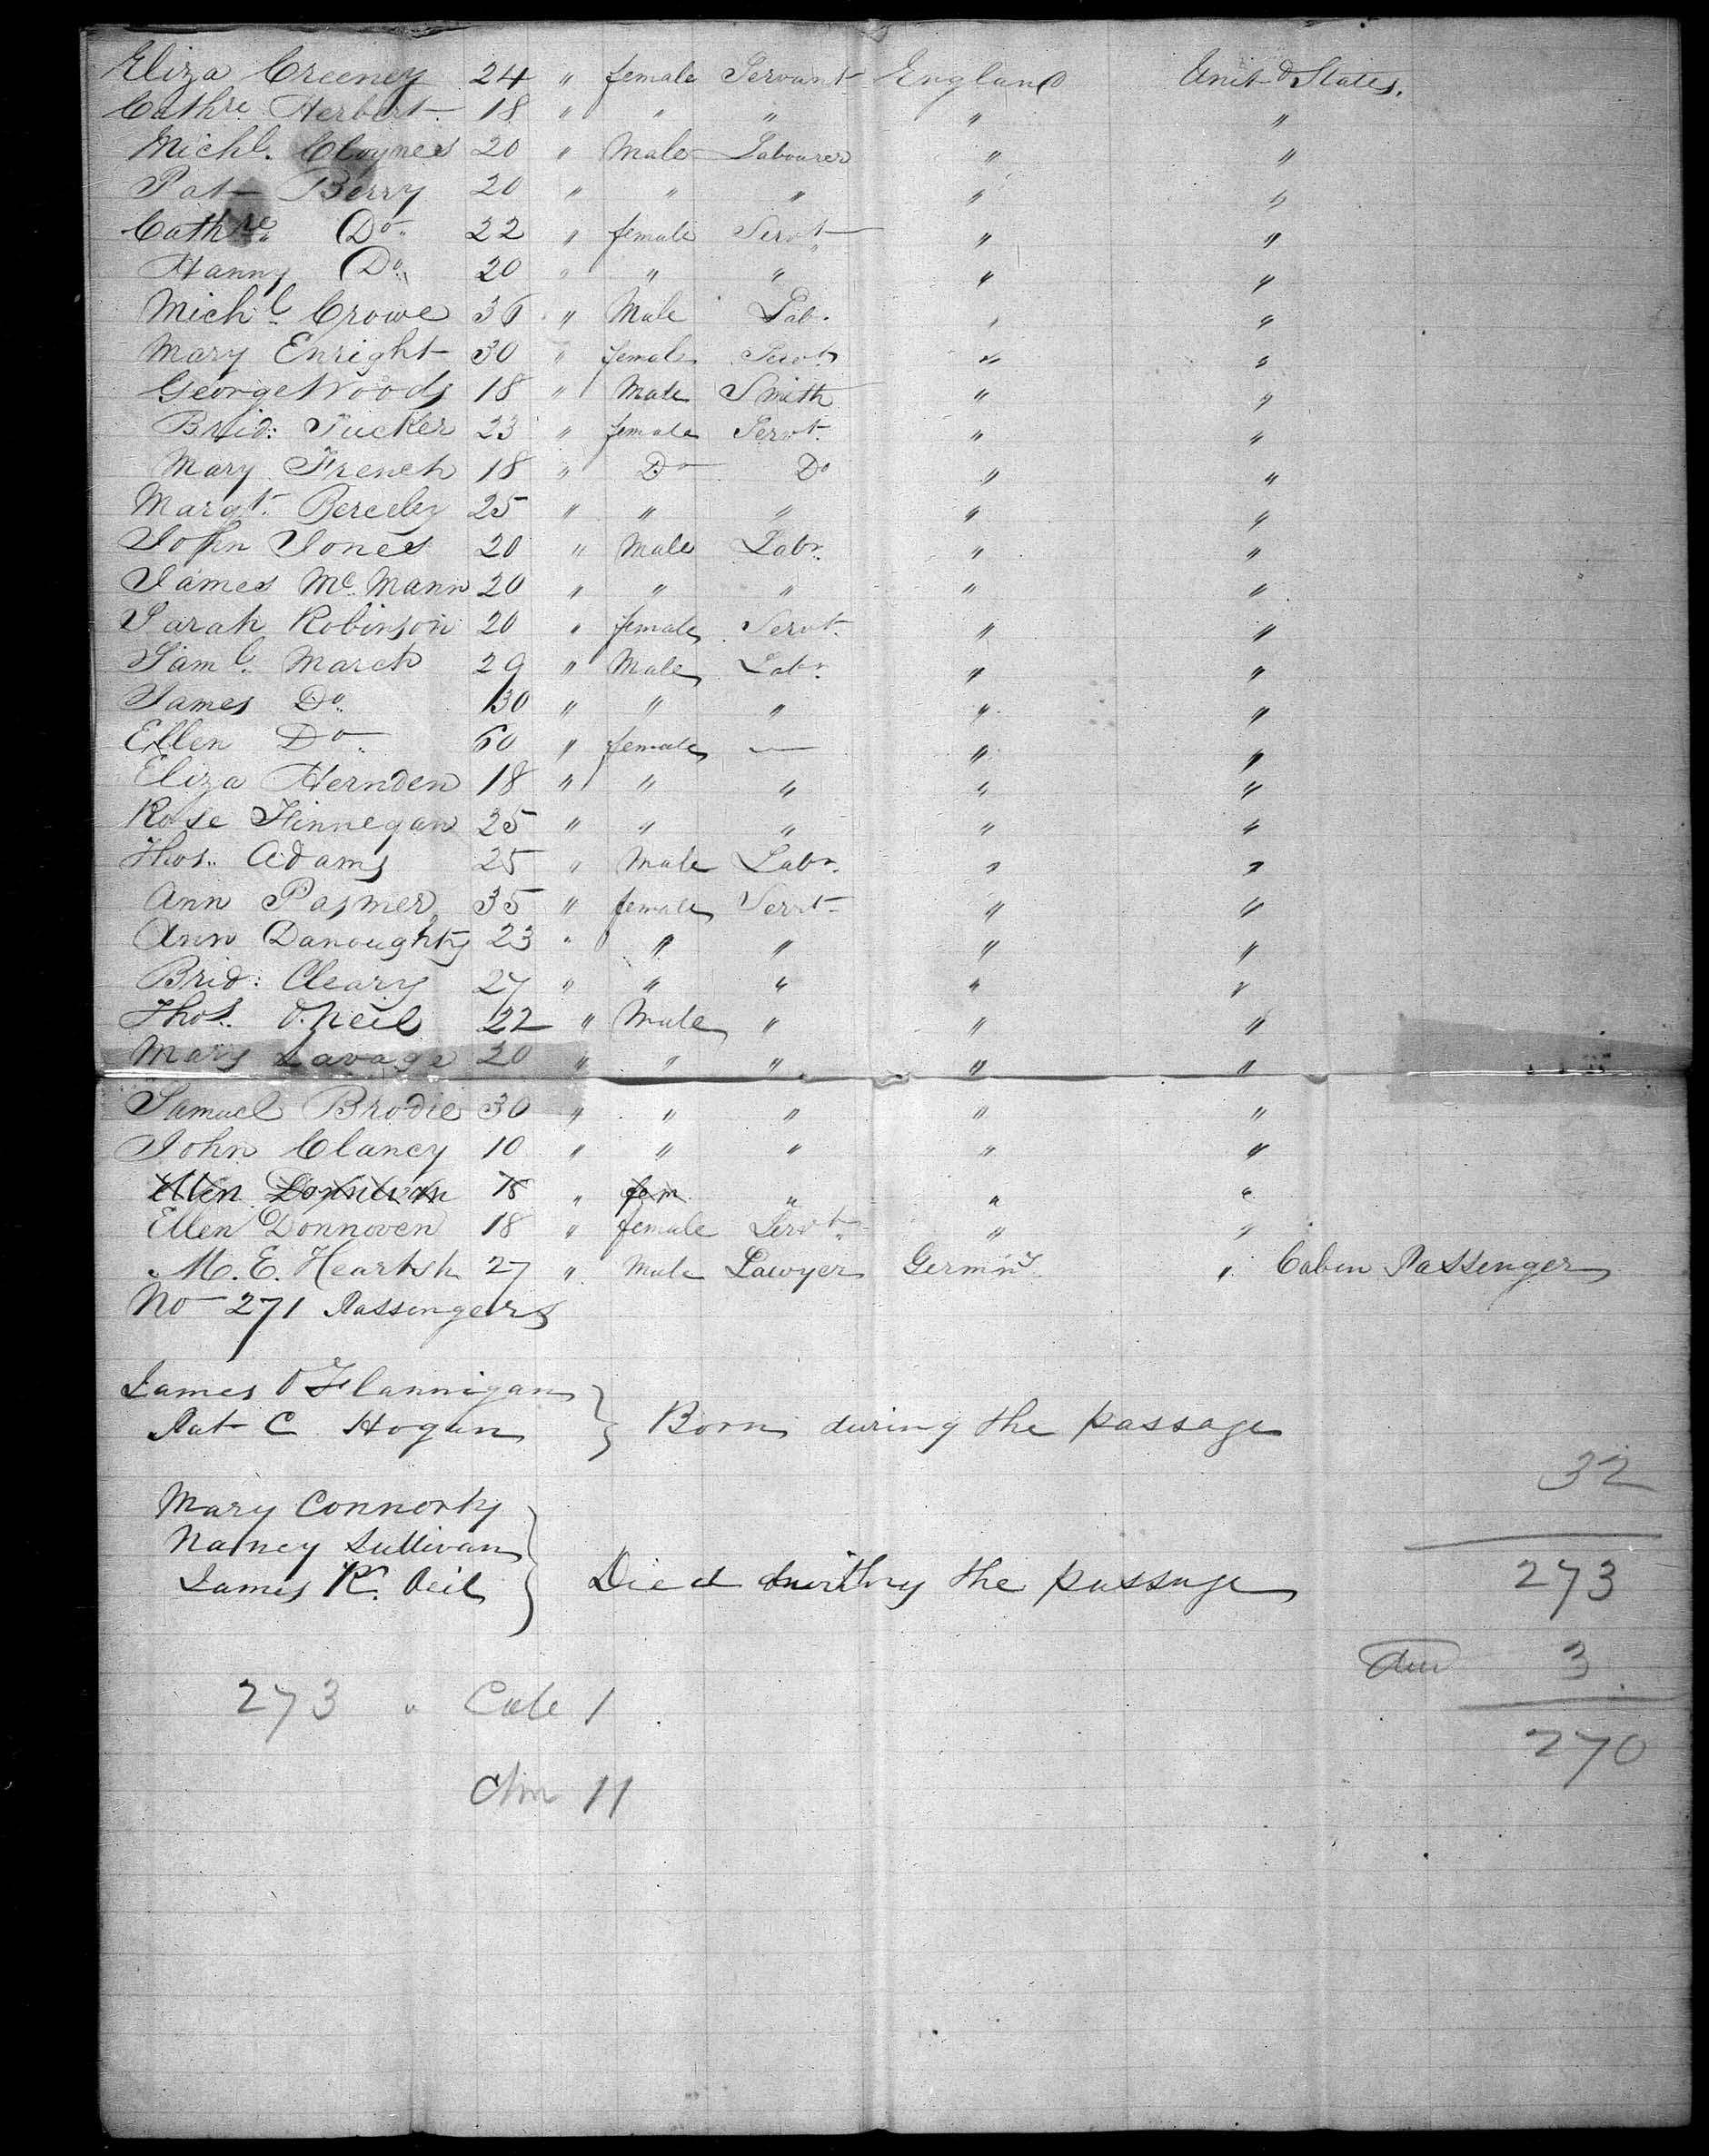 Eliza Creeney 24 " female Servant England Unitd States.
Cathre Herbert 18 " " " " "
Michl. Cloynes 20 " Male Labourer " "
Pat Berry 20 " " " " "
Cathre Do 22 " female Servt " "
Hanny Do 20 " " " " "
Michl. Crowe 36 " Male Lab. " "
Mary Enright 30 " female Servt " "
George Woods 18 " Male Smith " "
Brid: Tucker 23 " female Servt. " "
Mary French 18 " Do Do " "
Margt. Bereeley 25 " " " " "
John Jones 20 " Male Labr. " "
James Mc.Mann 20 " " " " "
Sarah Robinson 20 " female Servt. " "
Saml. March 29 " Male Labr. " "
James Do. 30 " " " " "
Ellen Do. 60 " female — " "
Eliza Hernden 18 " " " " "
Rose Finnegan 25 " " " " "
Thos.. Adams 25 " Male Labr. " "
Ann Pasmer 35 " female Servt " "
Ann Danoughty 23 " " " " "
Brid: Cleary 27 " " " " "
Thos.. O.Neil 22 " Male " " "
Mary Savage 20 " " " " "
Samuel Brodie 30 " " " " "
John Clancy 10 " " " " "
Ellen Donnovan 18 " fem " " "
Ellen Donnoven 18 " female Servt " "
M. E. Heartsh 27 " Male Lawyer Germny " Caben Passenger
No 271 Passengers
James O Flannigan
Pat C Hogan } Born during the passage
32
Mary Connorty
Nancy Sullivan
James K. Oeil } Died during the passage
273
3
273 " Cab 1
270
11